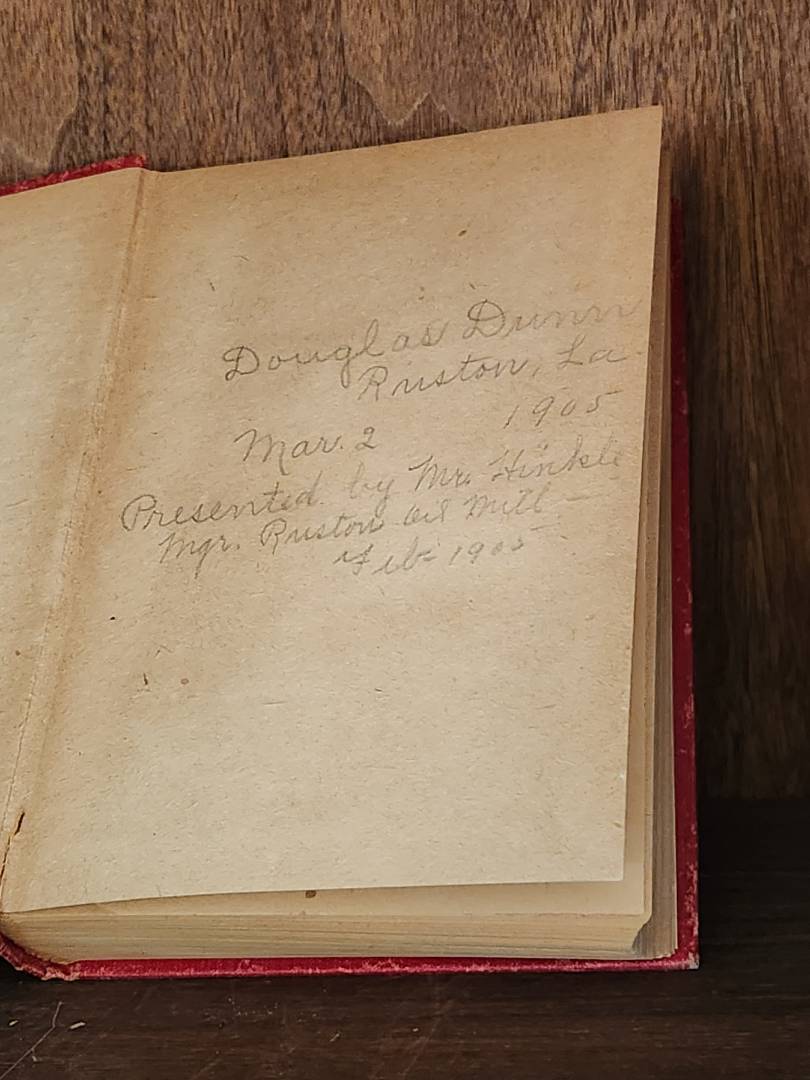 Douglas Dunn
Ruston, La.
Mar. 2 1905
Presented by Mr. Hinkle
Mgr. Ruston Oil Mill —
Feb- 1905